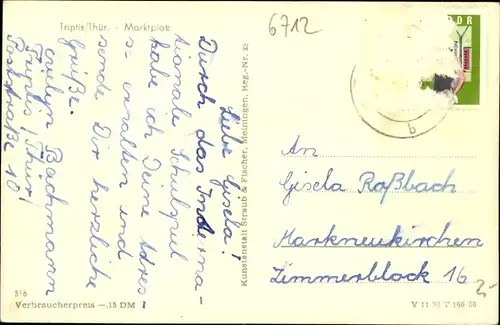 Triptis/Thür. - Marktplatz
6712
DDR
Liebe Gisela!
Durch das Interna-
tionale Schulspiel
habe ich Deine Adres-
se erhalten und
sende Dir herzliche
Grüße.
Evelyn Bachmann
Triptis/Thür/
Poststraße 10
Kunstanstalt Straub & Fischer, Meiningen, Reg.-Nr. 32
An
Gisela Roßbach
Markneukirchen
Zimmerblock 16
516
Verbraucherpreis —,15 DM